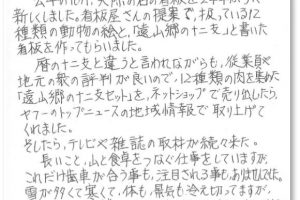 新しくしました。看板屋さんの提案で、扱っている12
種類の動物の絵と、「遠山郷の十二支」と書いた
看板を作ってもらいました。
暦の十二支と違うと言われながらも、従業員や
地元の衆の評判が良いので、12種類の肉を集めた
「遠山郷の十二支セット」を、ネットショップで売り出したら、
ヤフーのトップニュースの地域情報で取り上げて
くれました。
そしたら、テレビや雑誌の取材が続々来た。
長いこと、山と食卓をつなぐ仕事をしていますが、
これだけ歯車が合う事も、注目される事も、ありませんでした。
雪が多くて寒くて、体も、景気も冷え切ってますが、